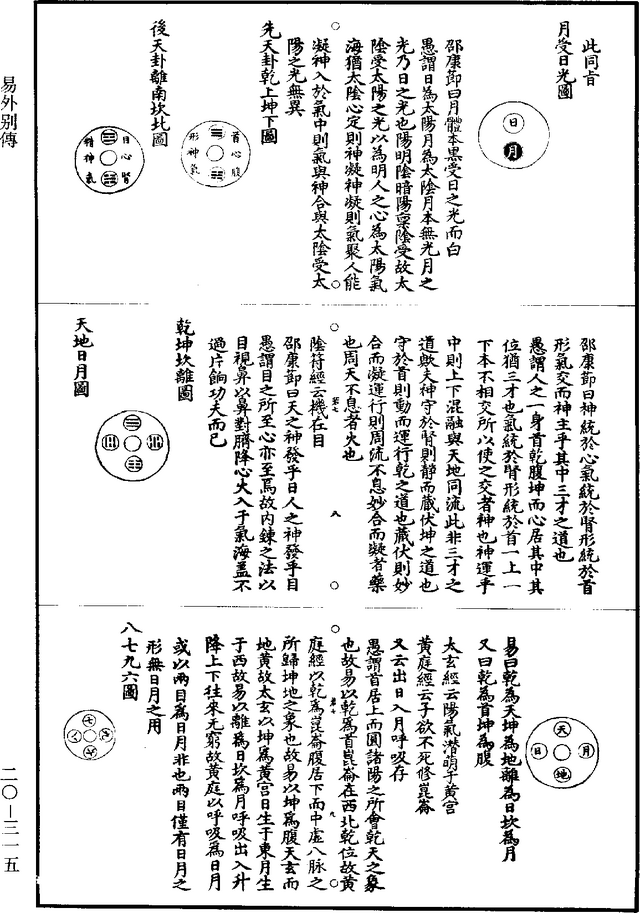 易外别傳
此同旨
月受日光圖
日
月
邵康節曰月體本黑受日之光而白
愚謂日為太陽月為太陰月本無光月之
光乃日之光也陽明陰暗陽稟陰受故太
陰受太陽之光以為明人之心為太陽氣
海猶太陰心定則神凝神凝則氣聚人能
凝神入於氣中則氣與神合與太陰受太
陽之光無異
先天卦乾上坤下圖
首心腹
形神氣
後天卦離南坎北圖
目心腎
精神氣
邵康節曰神統於心氣統於腎形統於首
形氣交而神主乎其中三才之道也
愚謂人之一身首乾腹坤而心居其中其
位猶三才也氣統於腎形統於首一上一
下本不相交所以使之交者神也神運乎
中則上下混融與天地同流此非三才之
道歟夫神守於腎則静而藏伏坤之道也
守於首則動而運行乾之道也藏伏則妙
合而凝運行則周流不息妙合而凝者藥
也周天不息者火也
陰符經云機在目
邵康節曰天之神發乎日人之神發乎目
愚謂目之所至心亦至焉故内鍊之法以
目視鼻以鼻對臍降心火入于氣海蓋不
過片餉功夫而已
乾坤坎離圖
天地日月圖
天
月
地
日
易曰乾為天坤為地離為日坎為月
又曰乾為首坤為腹
太玄經云陽氣潛萌于黄宫
黄庭經云子欲不死修崑崙
又云出日入月呼吸存
愚謂首居上而圓諸陽之所會乾天之象
也故易以乾為首崑崙在西北乾位故黄
庭經以乾為崑崙腹居下而中虚八脉之
所歸坤地之象也故易以坤為腹天玄而
地黄故太玄以坤為黄宫日生于東月生
于西故易以離為日坎為月呼吸出入升
降上下往來无窮故黄庭以呼吸為日月
或以兩目為日月非也兩目僅有日月之
形無日月之用
八七九六圖
七
九
六
八
二〇—三一五